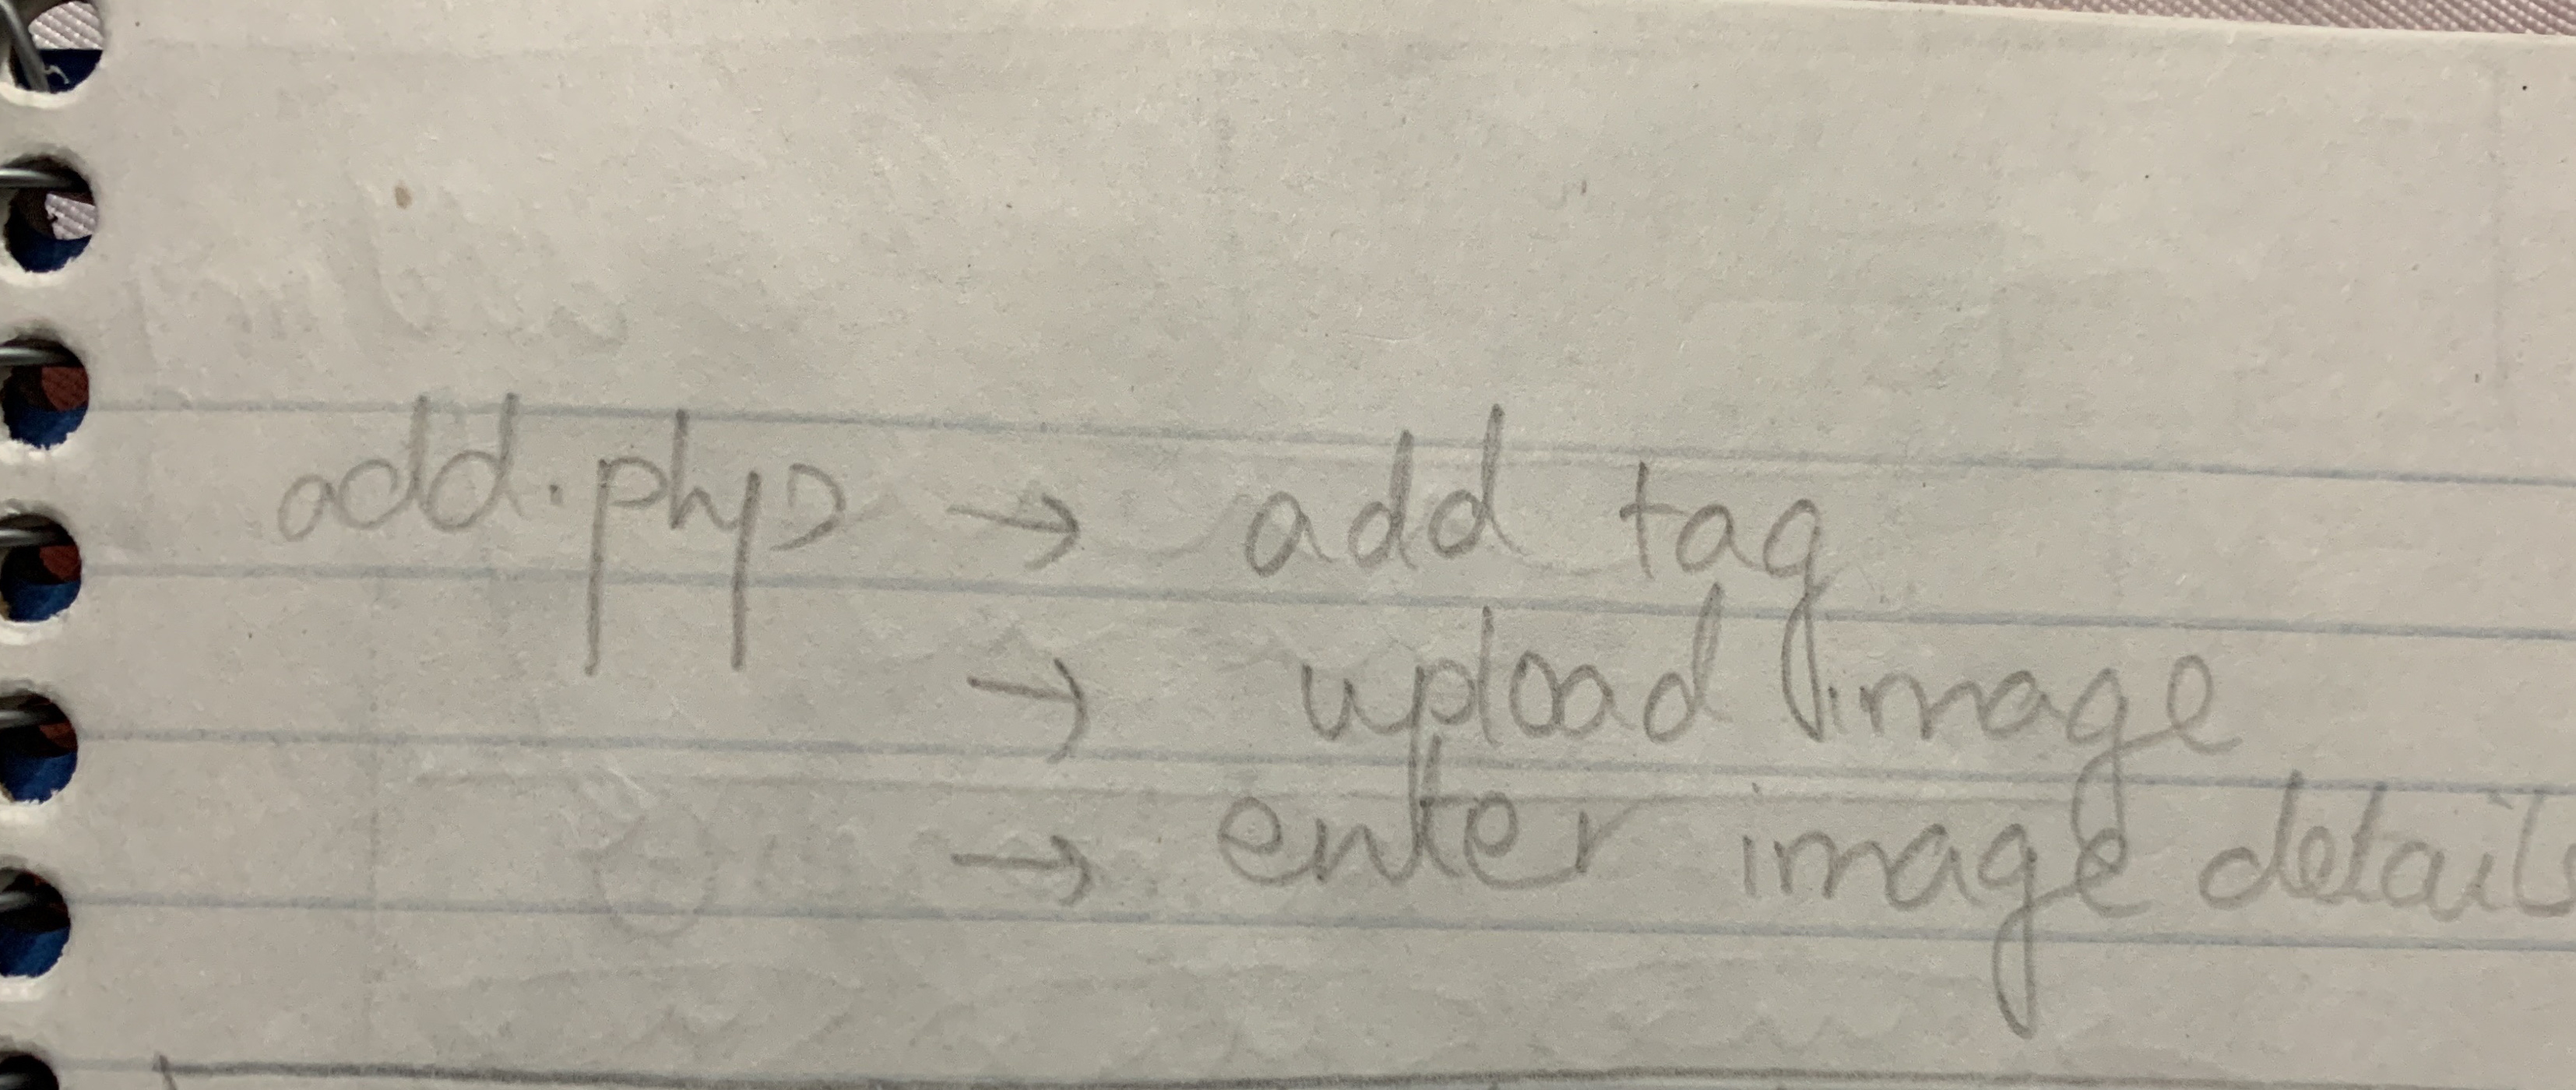 add.php → add tag
→ upload image
→ enter image details